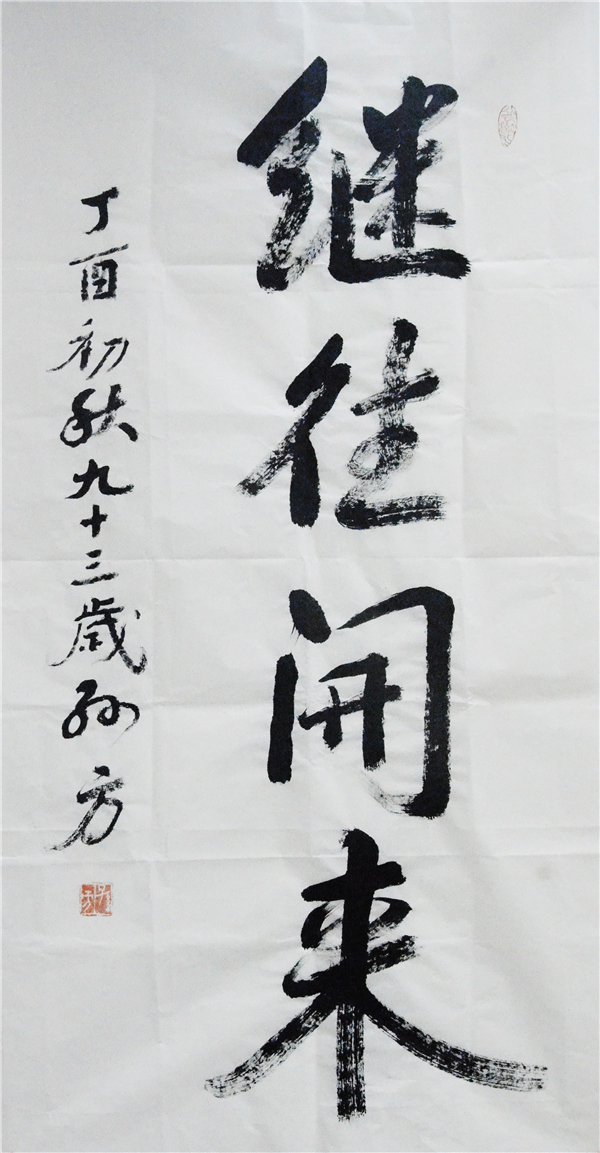 继往开来
丁酉初秋九十三歲孙方